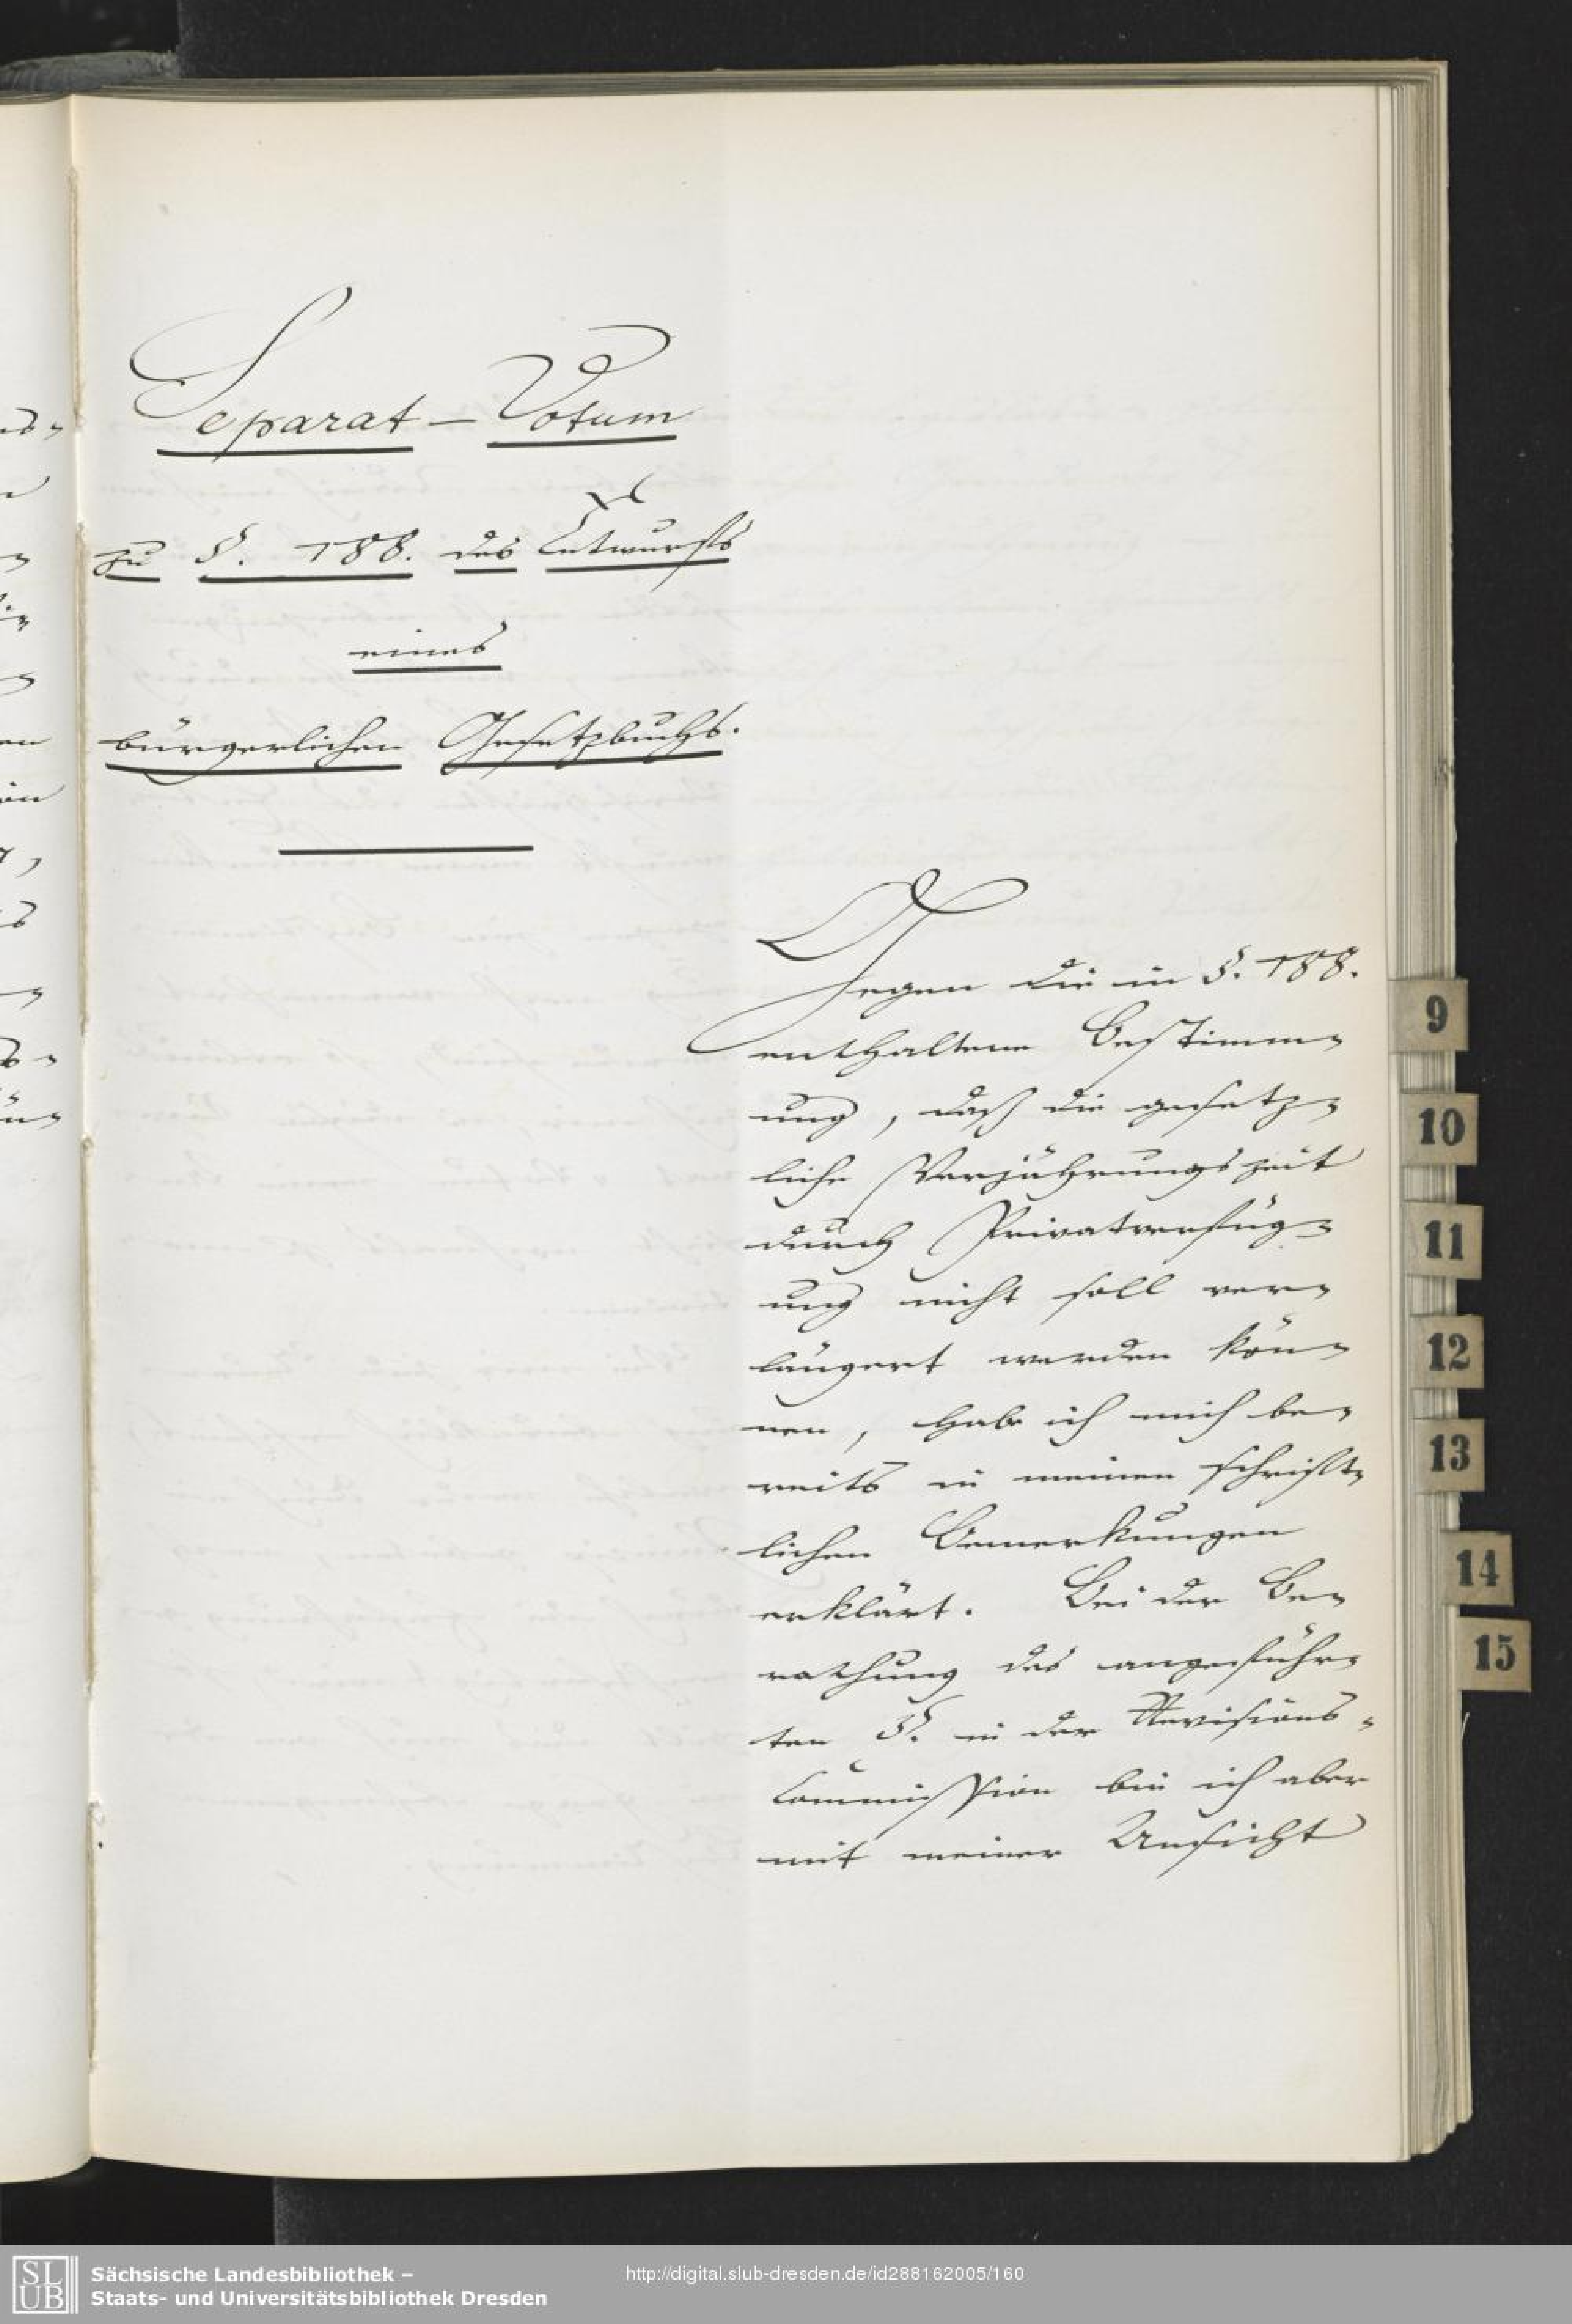 Separat-Votum
zu §. 188. des Entwurfs
eines
bürgerlichen Gesetzbuchs.
Gegen die in §. 188.
enthaltene Bestimm-
ung, daß die gesetz-
liche Verjährungszeit
durch Privatverfüg-
ung nicht soll ver-
längert werden kön-
nen, habe ich mich be-
reits in meinen schrift-
lichen Bemerkungen
erklärt. Bei der Be-
rathung des angeführ-
ten §. in der Revisions-
Commission bin ich aber
mit meiner Ansicht
9
10
11
12
13
14
15
SLUB
Sächsische Landesbibliothek –
Staats- und Universitätsbibliothek Dresden
http://digital.slub-dresden.de/id288162005/160